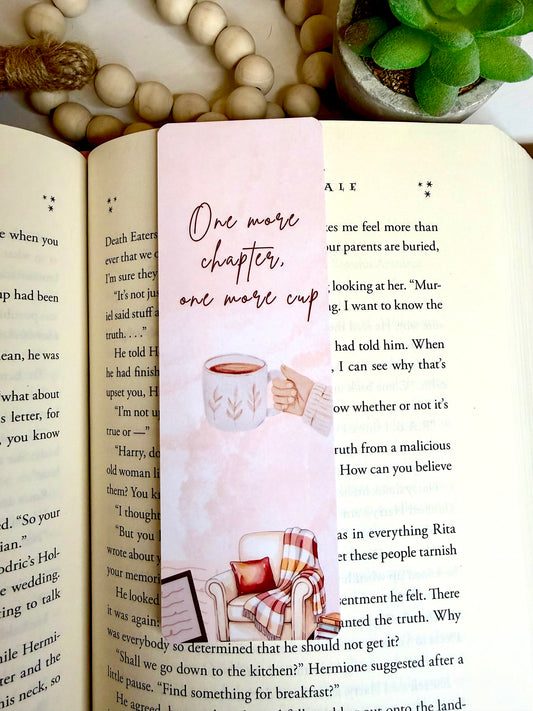 e when you
up had been
ean, he was
what about
s letter, for
, you know
ed. “So your
ian.”
odric’s Hol-
e wedding.
ting to talk
hile Hermi-
ter and the
his neck, so
ALE
Death Eaters
ever that we
I’m sure they
“It’s not jus
iel said stuff a
truth. . . .”
He told H
he had finish
upset you, H
“I’m not u
true or —”
“Harry, do
old woman li
them? You k
“I thought
“But you
wrote about y
your memori
He looked
it was again:
One more
chapter,
one more cup
kes me feel more than
our parents are buried,
looking at her. “Mur-
ng. I want to know the
had told him. When
, I can see why that’s
ow whether or not it’s
ruth from a malicious
How can you believe
as in everything Rita
et these people tarnish
sentment he felt. There
anted the truth. Why
was everybody so determined that he should not get it?
“Shall we go down to the kitchen?” Hermione suggested after a
little pause. “Find something for breakfast?”
He agreed,
out onto the land-